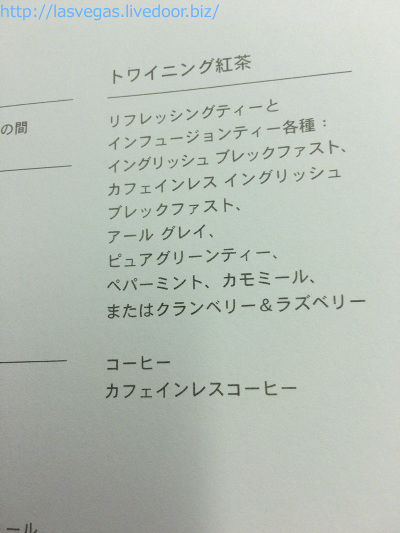 http://lasvegas.livedoor.biz/
トワイニング紅茶
の間
リフレッシングティーと
インフュージョンティー各種：
イングリッシュ ブレックファスト、
カフェインレス イングリッシュ
ブレックファスト、
アール グレイ、
ピュアグリーンティー、
ペパーミント、カモミール、
またはクランベリー＆ラズベリー
コーヒー
カフェインレスコーヒー
ール